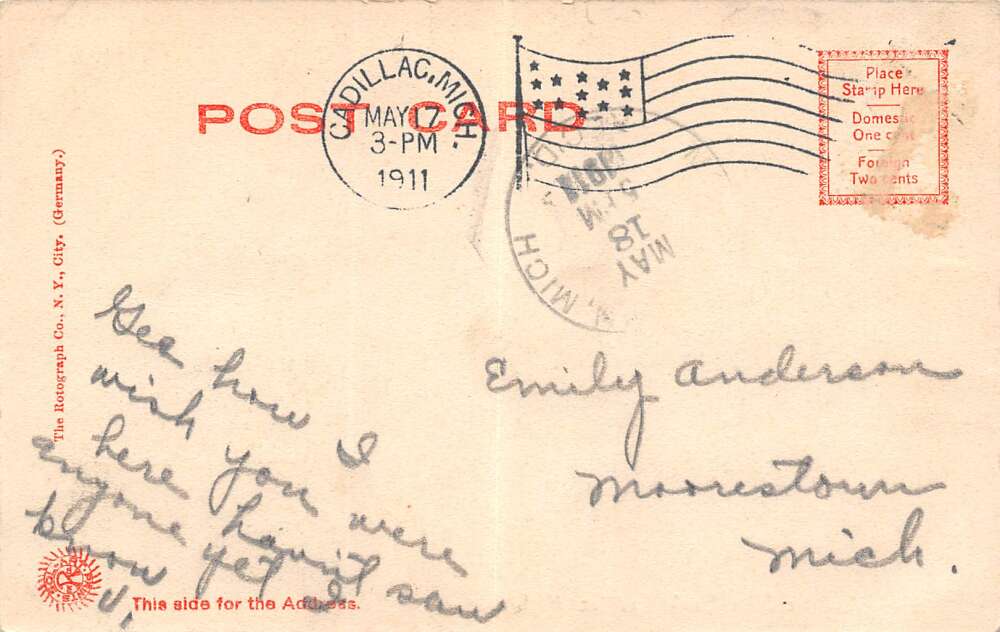 POST CARD
CADILLAC, MICH.
MAY 17
3-PM
1911
MICH
MAY
18
1911
Place
Stamp Here
Domestic
One cent
Foreign
Two cents
The Rotograph Co., N. Y., City. (Germany.)
Gee how I
wish you were
here havint saw
anyone yet I
know
V.
Emily Anderson
Moorestown
Mich.
This side for the Address.